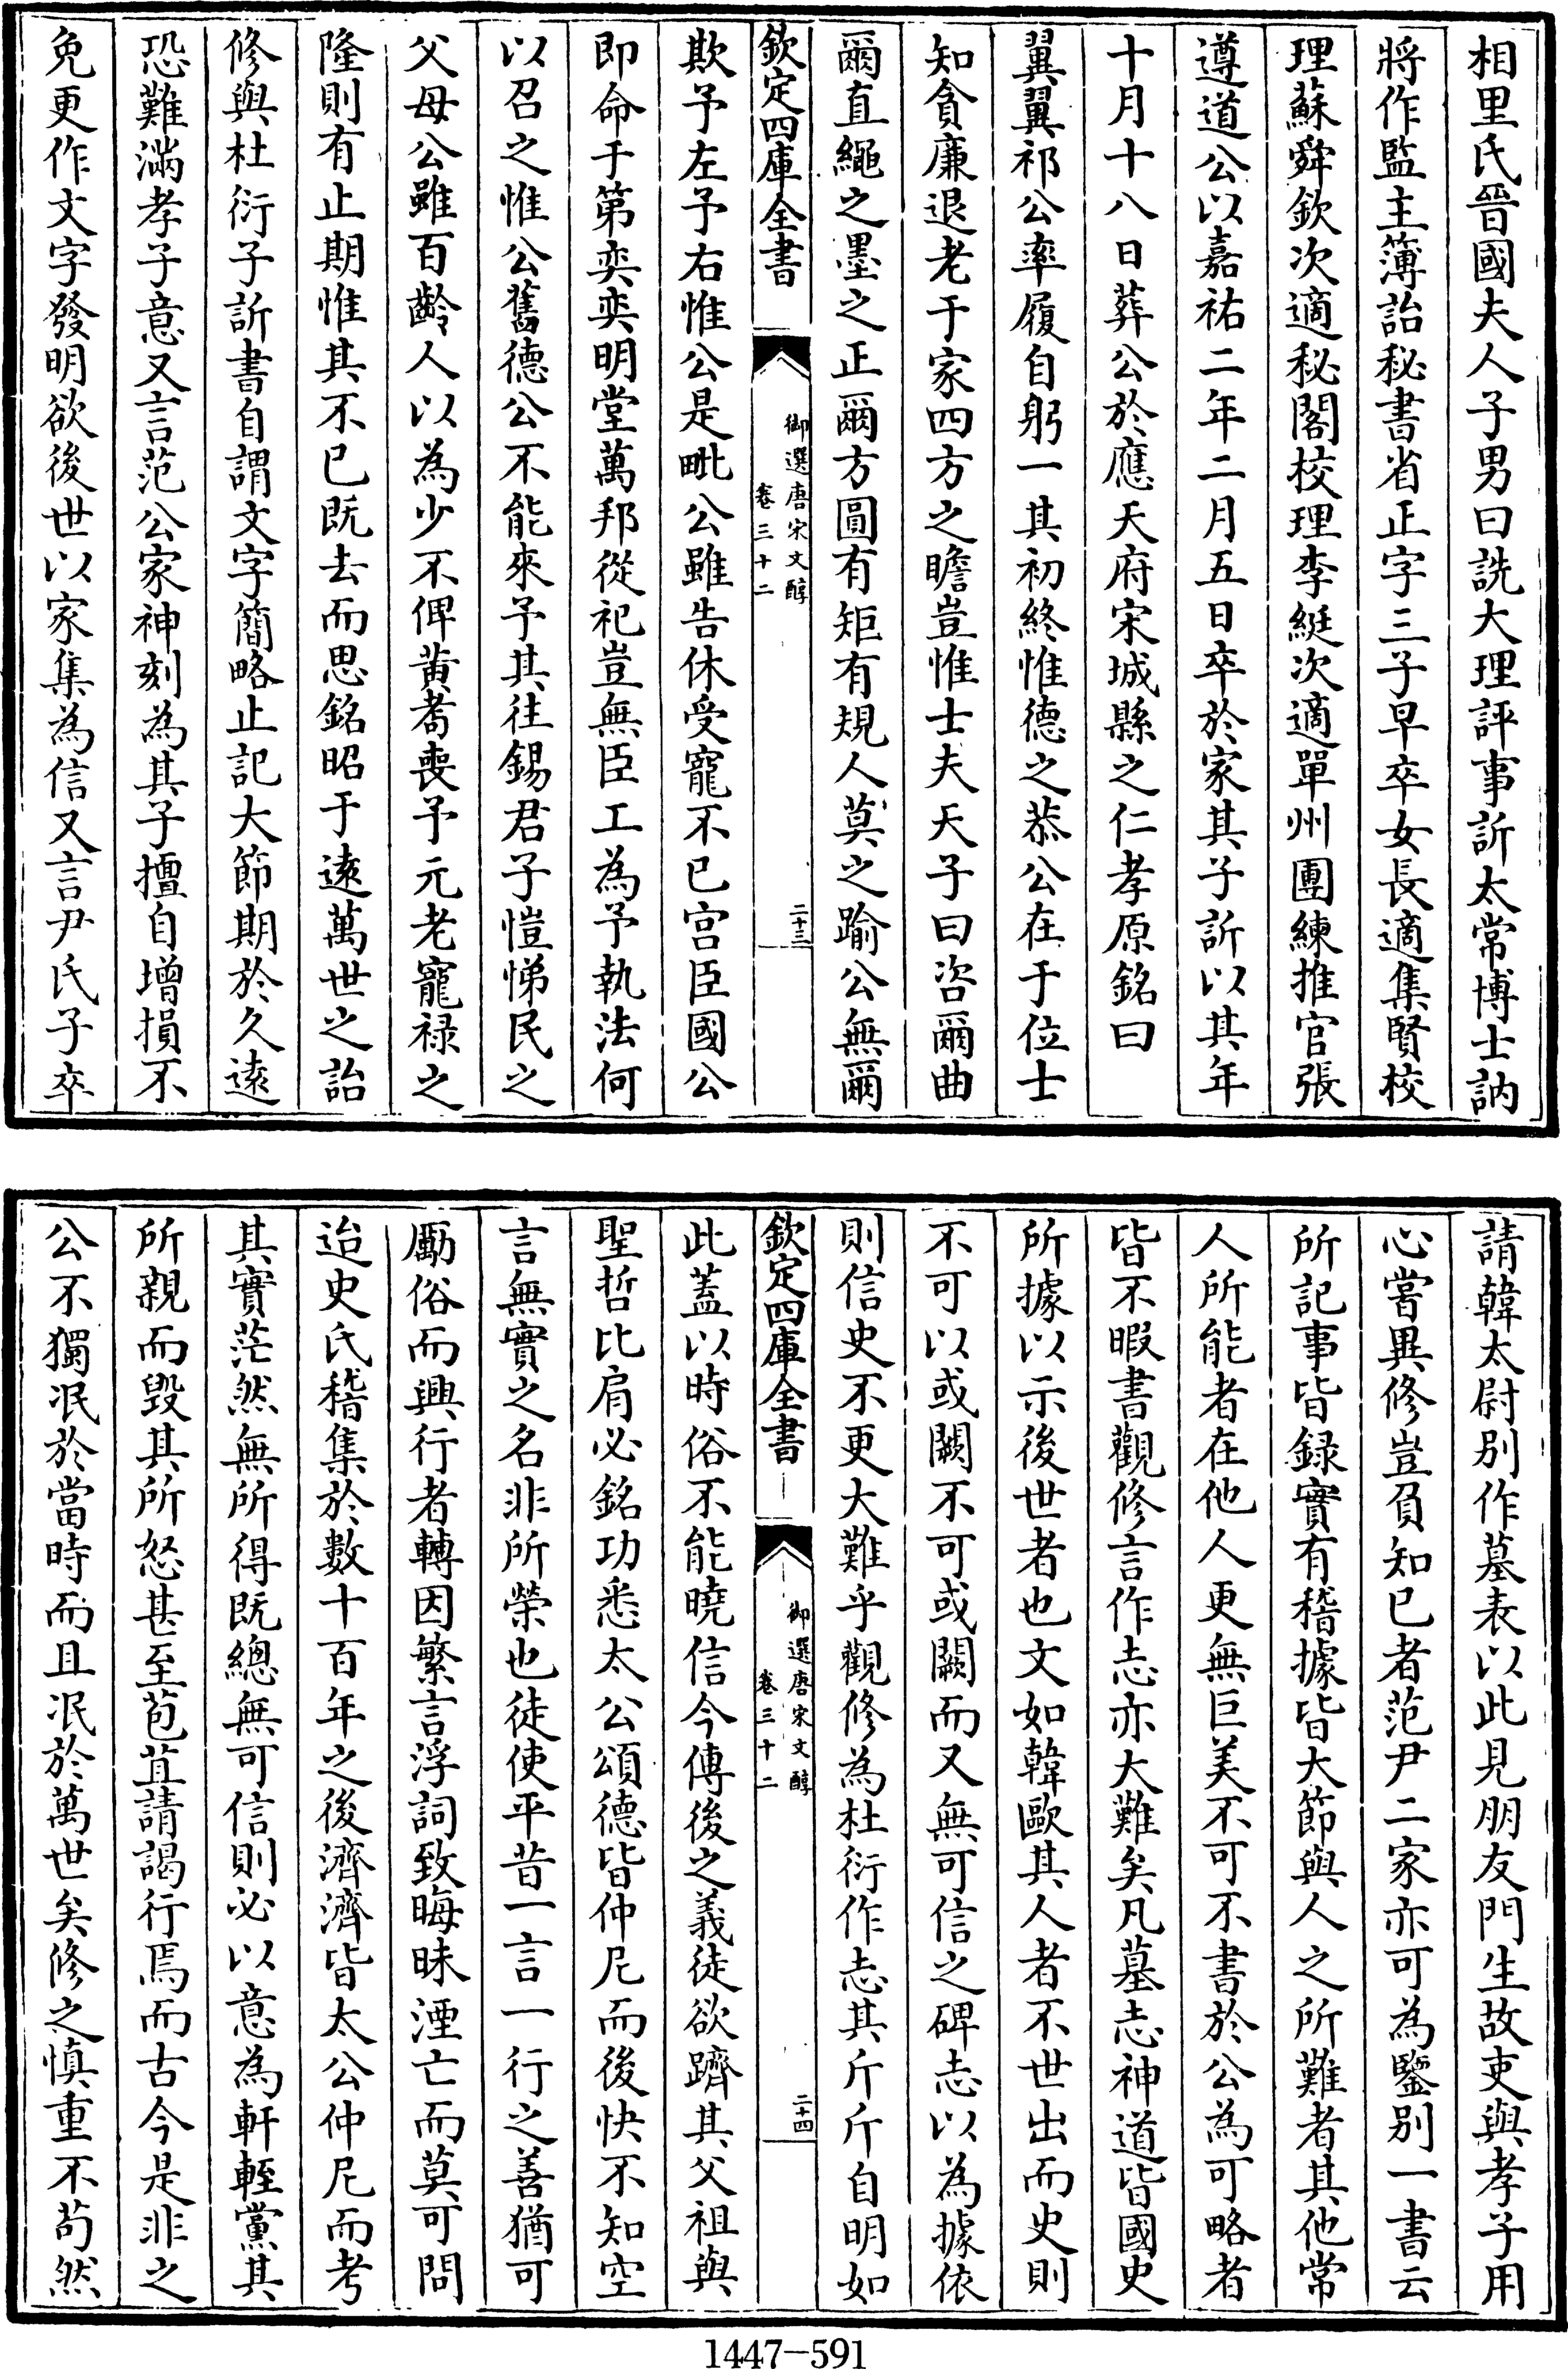 相里氏晉國夫人子男曰詵大理評事訢太常博士訥
將作監主簿詒秘書省正字三子早卒女長適集賢校
理蘇舜欽次適秘閣校理李綖次適單州團練推官張
遵道公以嘉祐二年二月五日卒於家其子訢以其年
十月十八日葬公於應天府宋城縣之仁孝原銘曰
翼翼祁公率履自躬一其初終惟德之恭公在于位士
知貪廉退老于家四方之瞻豈惟士夫天子曰咨爾曲
爾直繩之墨之正爾方圓有矩有規人莫之踰公無爾
欽定四庫全書
御選唐宋文醇
卷三十二
二十三
欺予左予右惟公是毗公雖告休受寵不已宫臣國公
即命于第奕奕明堂萬邦從祀豈無臣工為予執法何
以召之惟公舊德公不能來予其往錫君子愷悌民之
父母公雖百齡人以為少不俾黄耇喪予元老寵禄之
隆則有止期惟其不已既去而思銘昭于逺萬世之詒
修與杜衍子訢書自謂文字簡略止記大節期於久逺
恐難滿孝子意又言范公家神刻為其子擅自增損不
免更作文字發明欲後世以家集為信又言尹氏子卒
請韓太尉别作墓表以此見朋友門生故吏與孝子用
心嘗異修豈負知已者范尹二家亦可為鑒别一書云
所記事皆録實有稽據皆大節與人之所難者其他常
人所能者在他人更無巨美不可不書於公為可略者
皆不暇書觀修言作志亦大難矣凡墓志神道皆國史
所據以示後世者也文如韓歐其人者不世出而史則
不可以或闕不可或闕而又無可信之碑志以為據依
則信史不更大難乎觀修為杜衍作志其斤斤自明如
欽定四庫全書
御選唐宋文醇
卷三十二
二十四
此蓋以時俗不能曉信今傳後之義徒欲躋其父祖與
聖哲比肩必銘功悉太公頌德皆仲尼而後快不知空
言無實之名非所榮也徒使平昔一言一行之善猶可
勵俗而興行者轉因繁言浮詞致晦昧湮亡而莫可問
迨史氏稽集於數十百年之後濟濟皆太公仲尼而考
其實茫然無所得既總無可信則必以意為軒輊黨其
所親而毀其所怒甚至苞苴請謁行焉而古今是非之
公不獨泯於當時而且泯於萬世矣修之慎重不苟然
1447-591